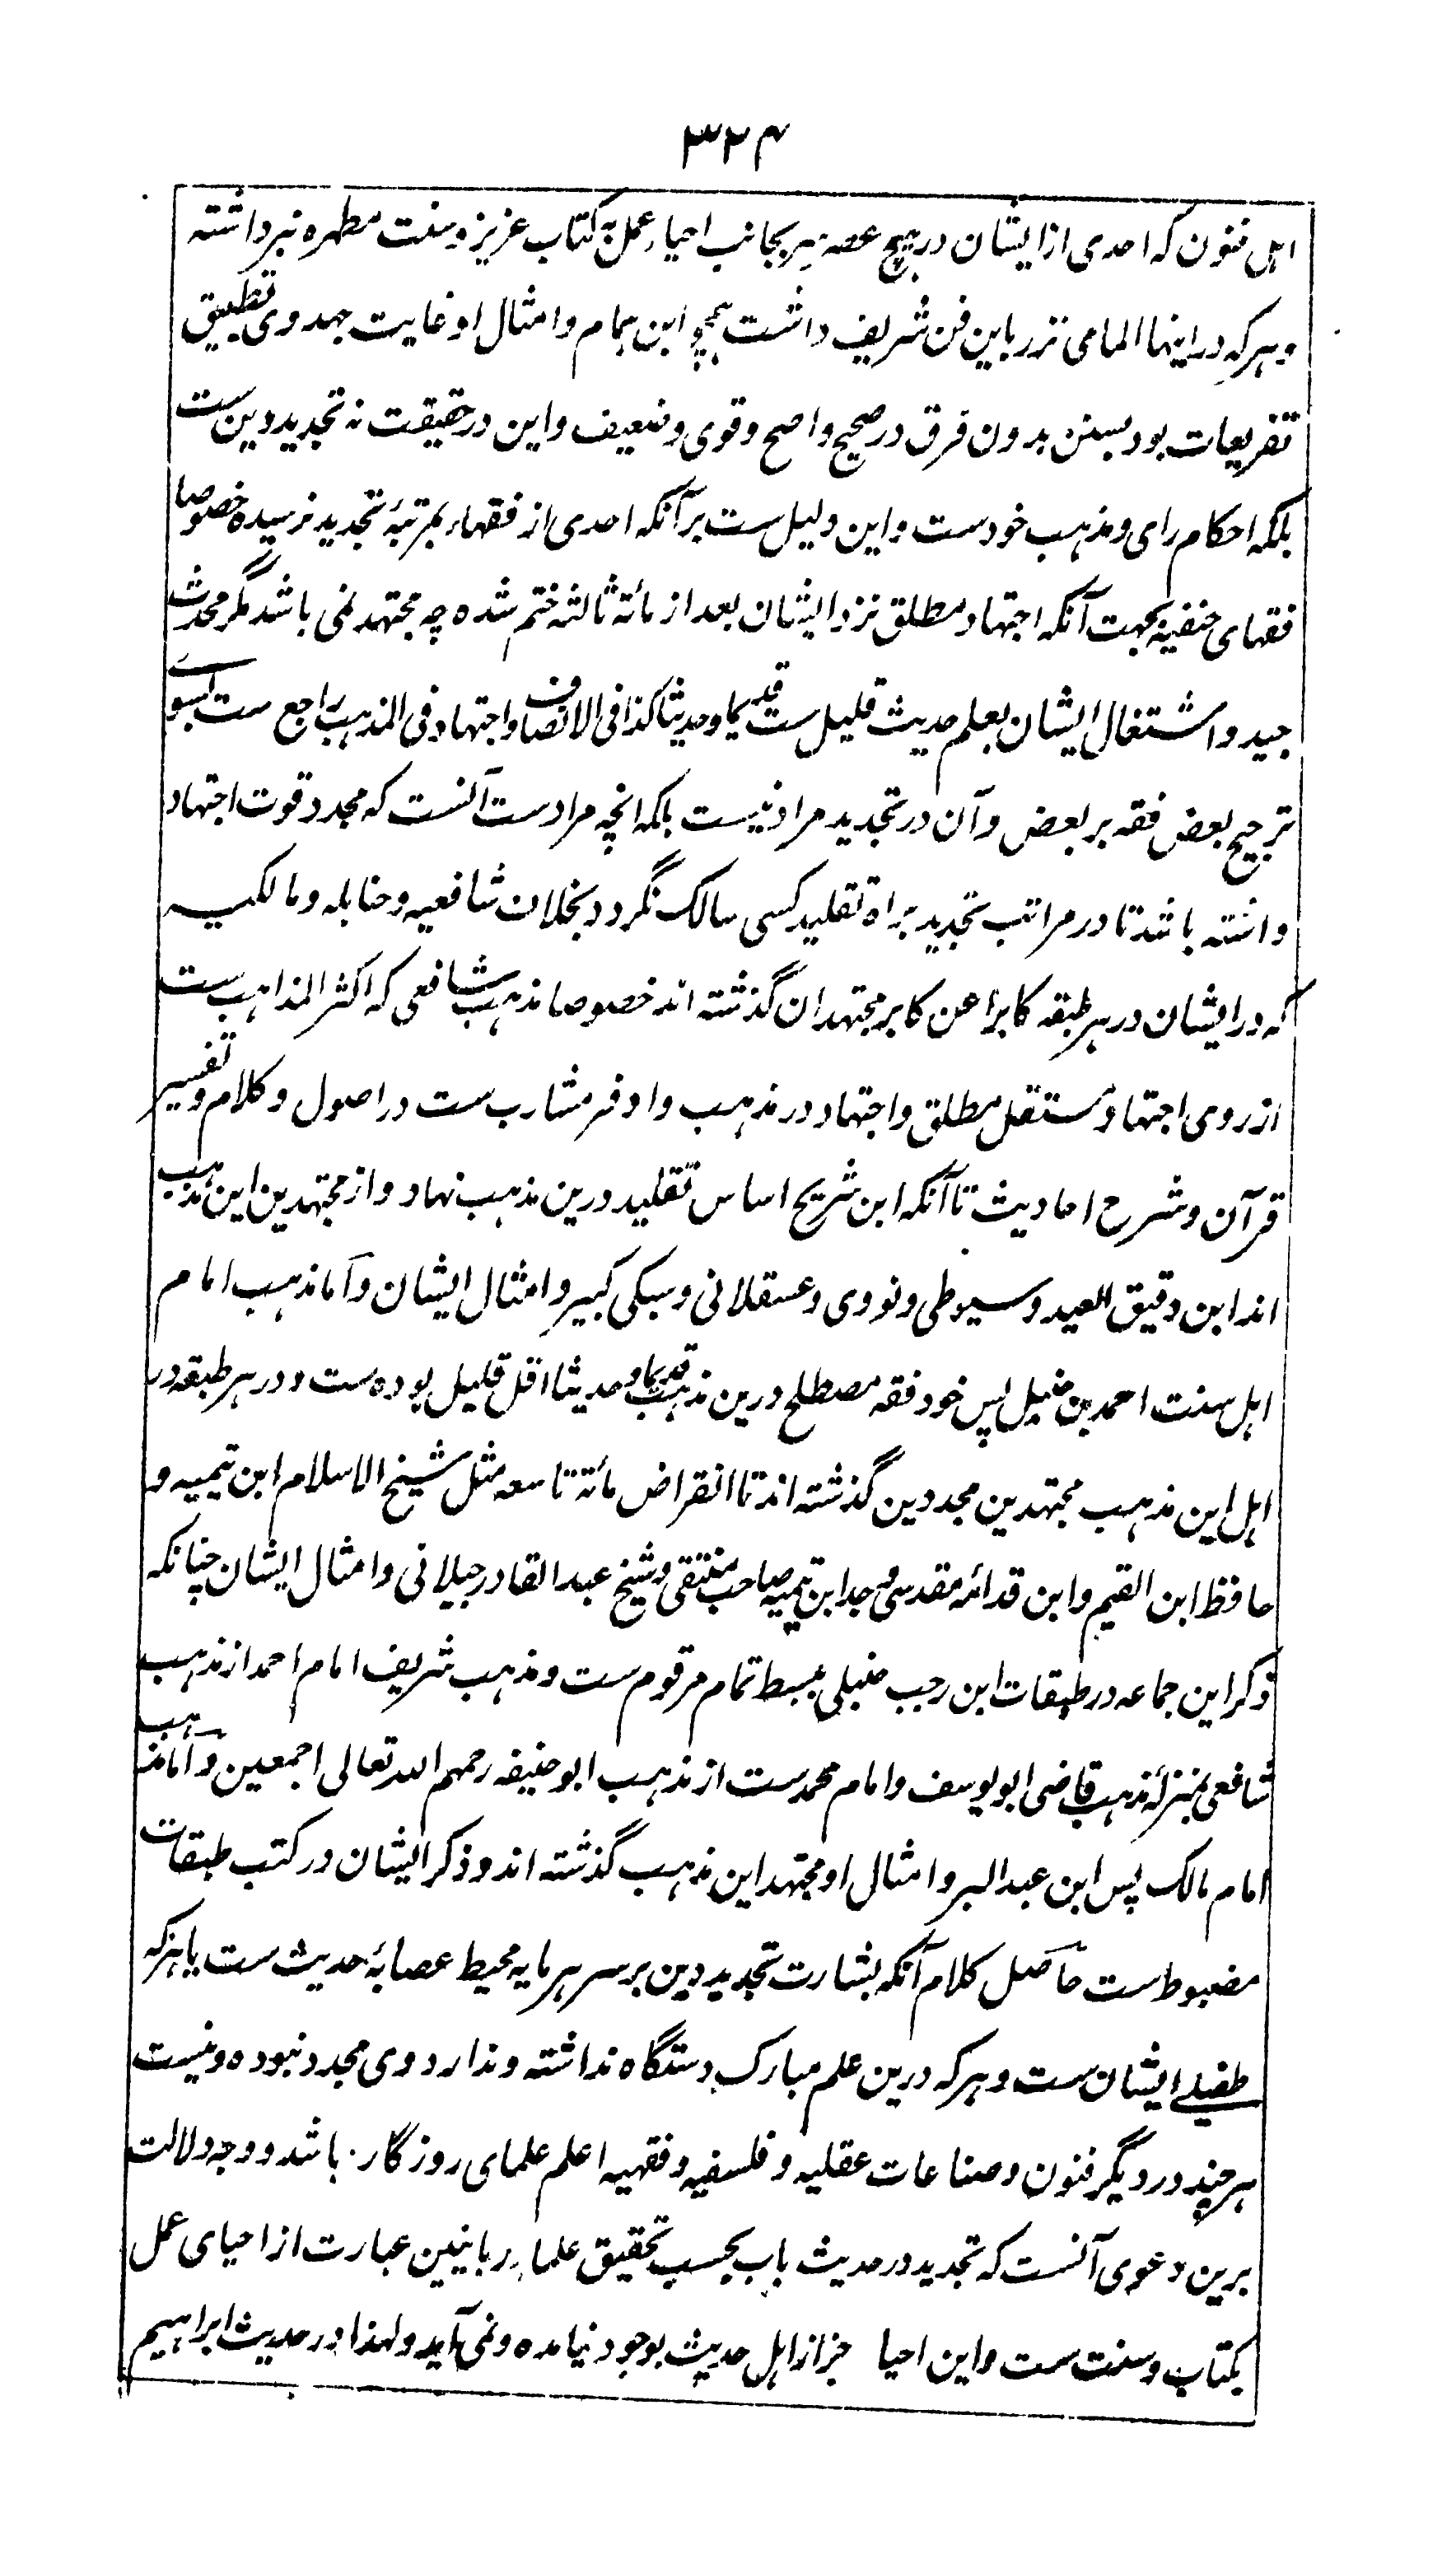 ۳۲۴
اہل فنون کہ احدی ازایشان درہیچ عصر سر بجانب احیاء عمل بہ کتاب عزیز وسنت مطہرہ نبرداشتہ
وہرکہ دراینہا المامی نزر باین فن شریف داشت ہمچو ابن ہمام وامثال او غایت جہد وی تطبیق
تفریعات بود بسنن بدون فرق درصحیح واصح وقوی وضعیف واین درحقیقت نہ تجدید دین ست
بلکہ احکام رای ومذہب خودست واین دلیل ست برآنکہ احدی از فقہاء بمرتبۂ تجدید نرسیدہ خصوصا
فقہای حنفیہ بجہت آنکہ اجتہاد مطلق نزد ایشان بعد از مائۃ ثالثہ ختم شدہ چہ مجتہد نمی باشد مگر محدث
جید واشتغال ایشان بعلم حدیث قلیل ست قدیما وحدیثا کذا فی الانصاف واجتہاد فی المذہب راجع ست بسوے
ترجیح بعض فقہ بر بعض وآن درتجدید مراد نیست بلکہ انچہ مرادست آنست کہ مجدد قوت اجتہاد
داشتہ باشد تا درمراتب تجدید براہ تقلید کسی سالک نگردد بخلاف شافعیہ وحنابلہ ومالکیہ
کہ درایشان درہرطبقہ کابرا عن کابر مجتہدان گذشتہ اند خصوصا مذہب شافعی کہ اکثر المذاہب ست
ازروی اجتہاد مستقل مطلق واجتہاد درمذہب واوفر مشارب ست دراصول وکلام وتفسیر
قرآن وشرح احادیث تاآنکہ ابن شریح اساس تقلید درین مذہب نہاد واز مجتہدین این مذہب
اند ابن دقیق العید وسیوطی ونووی وعسقلانی وسبکی کبیر وامثال ایشان وآما مذہب امام
اہل سنت احمد بن حنبل پس خود فقہ مصطلح درین مذہب قدیما وحدیثا اقل قلیل بودہ ست ودرہرطبقہ در
اہل این مذہب مجتہدین مجددین گذشتہ اند تا انقراض مائۃ تاسعہ مثل شیخ الاسلام ابن تیمیہ و
حافظ ابن القیم وابن قدامہ مقدسی وجد ابن تیمیہ صاحب منتقی وشیخ عبدالقادر جیلانی وامثال ایشان چنانکہ
ذکر این جماعہ درطبقات ابن رجب حنبلی ببسط تمام مرقوم ست ومذہب شریف امام احمد از مذہب
شافعی بمنزلۂ مذہب قاضی ابویوسف وامام محمدست از مذہب ابوحنیفہ رحمہم اللہ تعالی اجمعین وآما مذہب
امام مالک پس ابن عبدالبر وامثال او مجتہد این مذہب گذشتہ اند وذکر ایشان درکتب طبقات
مضبوط ست حاصل کلام آنکہ بشارت تجدید دین برسر ہرمایہ محیط عصابۂ حدیث ست یا ہرکہ
طفیلے ایشان ست وہرکہ درین علم مبارک دستگاہ نداشتہ وندارد وی مجدد نبودہ ونیست
ہرچند دردیگر فنون وصناعات عقلیہ وفلسفیہ وفقہیہ اعلم علمای روزگار باشد ووجہ دلالت
برین دعوی آنست کہ تجدید درحدیث باب بحسب تحقیق علماء ربانیین عبارت از احیای عمل
بکتاب وسنت ست واین احیا جز از اہل حدیث بوجود نیامدہ ونمی آید ولہذا درحدیث ابراہیم